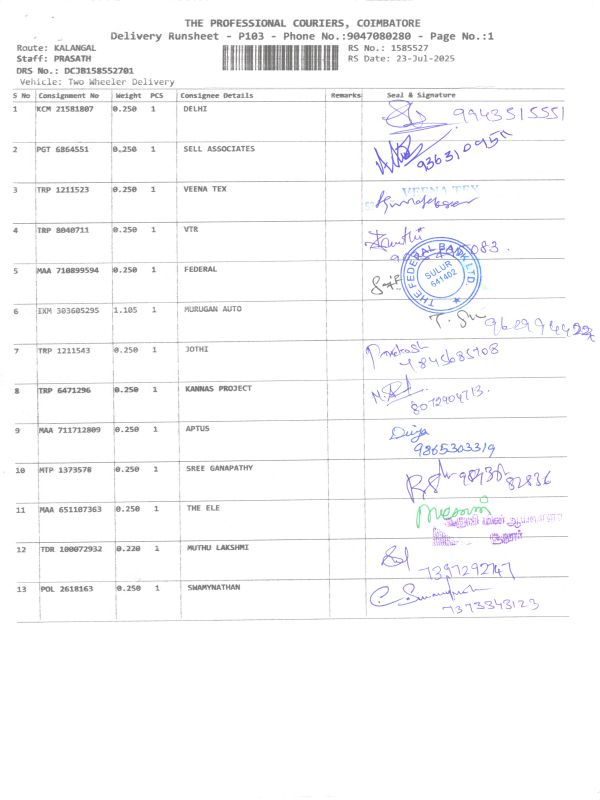 THE PROFESSIONAL COURIERS, COIMBATORE
Delivery Runsheet - P103 - Phone No.:9047080280 - Page No.:1
Route: KALANGAL RS No.: 1585527
Staff: PRASATH RS Date: 23-Jul-2025
DRS No.: DCJB158552701
Vehicle: Two Wheeler Delivery
S No Consignment No Weight PCS Consignee Details Remarks Seal & Signature
1 KCM 21581807 0.250 1 DELHI 9943515551
2 PGT 6864551 0.250 1 SELL ASSOCIATES
3 TRP 1211523 0.250 1 VEENA TEX VEENA TEX
4 TRP 8040711 0.250 1 VTR
5 MAA 710899594 0.250 1 FEDERAL THE FEDERAL BANK LTD. SULUR 641402
6 IXM 303605295 1.105 1 MURUGAN AUTO
7 TRP 1211543 0.250 1 JOTHI Prakash
8 TRP 6471296 0.250 1 KANNAS PROJECT 8072904713.
9 MAA 711712809 0.250 1 APTUS Divya
9865303319
10 MTP 1373578 0.250 1 SREE GANAPATHY
82836
11 MAA 651107363 0.250 1 THE ELE
12 TDR 100072932 0.220 1 MUTHU LAKSHMI
7397292747
13 POL 2618163 0.250 1 SWAMYNATHAN
7373343123